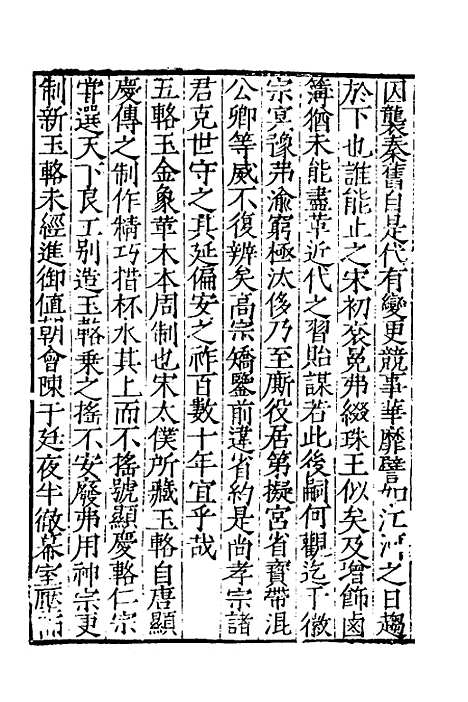 因襲秦舊自是代有變更競事華靡譬如江河之日趨
於下也誰能止之宋初袞冕弗綴珠玉似矣及增飾鹵
簿猶未能盡革近代之習貽謀若此後嗣何觀迄于徽
宗㝠豫弗渝窮極汰侈乃至厮役居第擬宮省寶帶混
公卿等威不復辨矣高宗矯鑒前違省約是尚孝宗諸
君克世守之其延偏安之祚百數十年宜乎哉
五輅玉金象革木本周制也宋太僕所藏玉輅自唐顯
慶傳之制作精巧措杯水其上而不搖號顯慶輅仁宗
甞選天下良工别造玉輅乗之搖不安廢弗用神宗更
制新玉輅未經進御值朝會陳于廷夜半徹幕室壓而